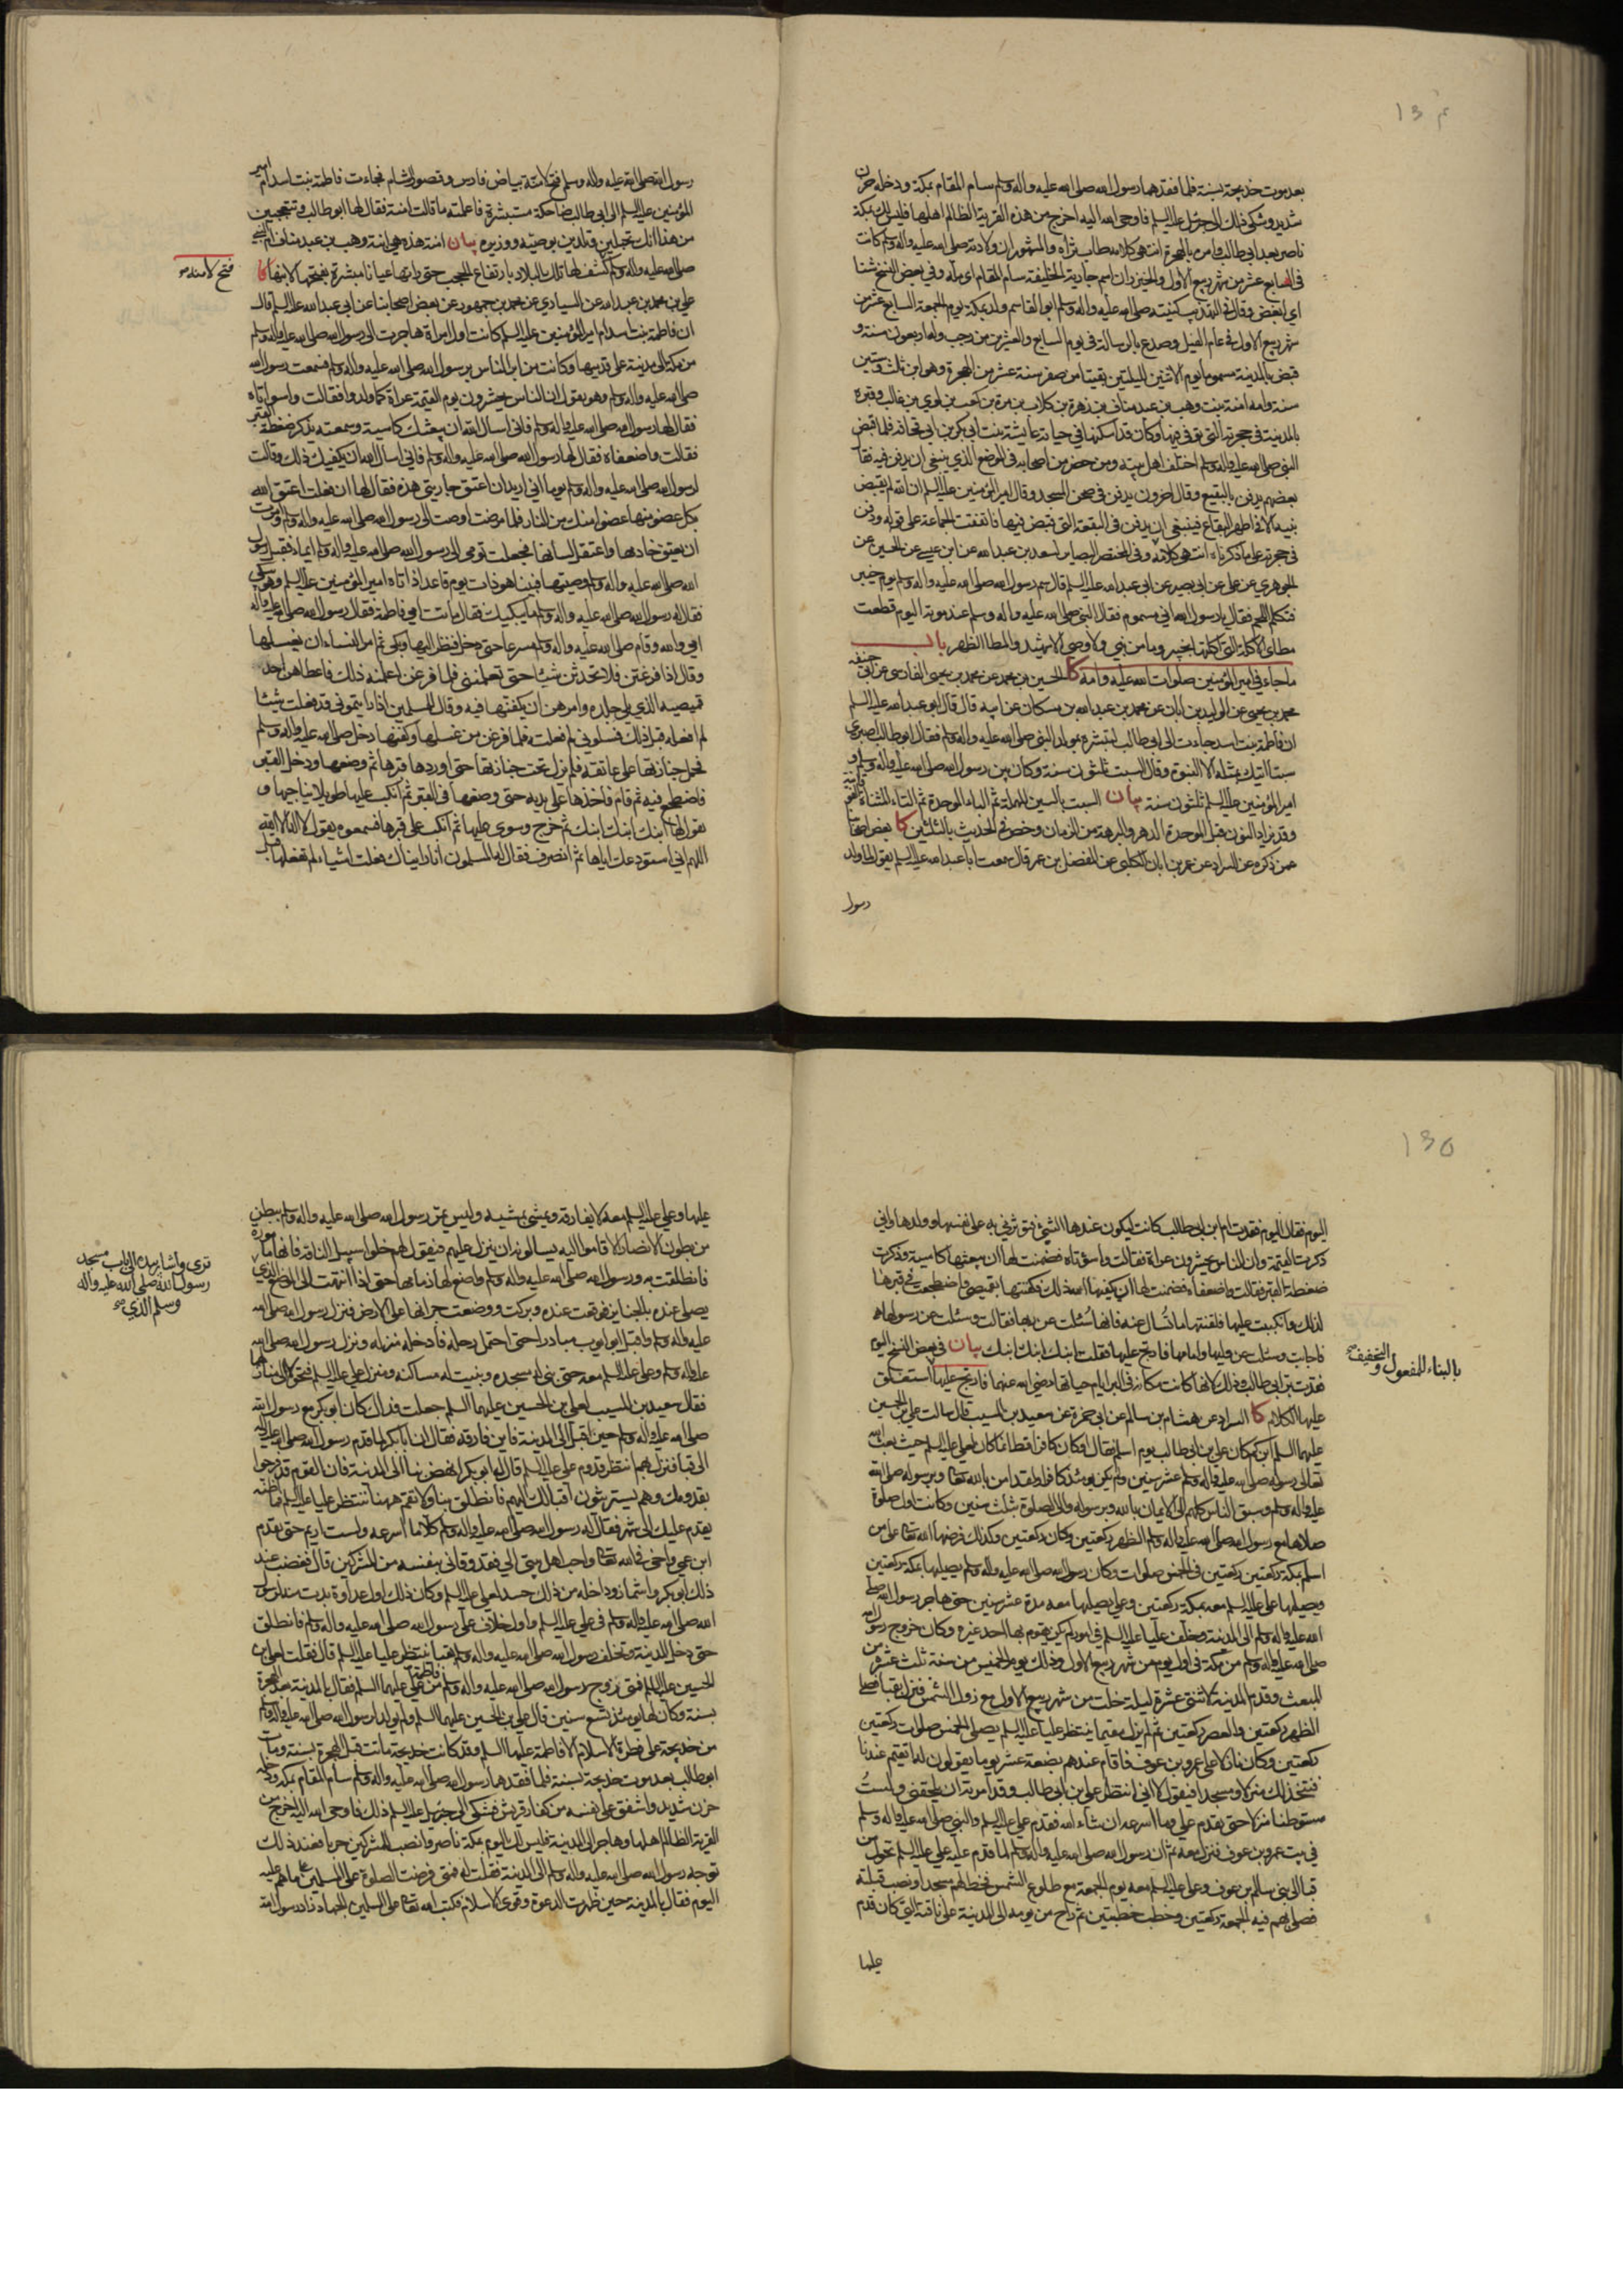 ١٣٤
بعد موت خديجة بسنة فلما فقدهما رسول الله صلى الله عليه واله وسلم سام المقام بمكة ودخله حزن
شديد وشكى ذلك الى جبرئيل عليه السلم فاوحى الله اليه اخرج من هذه القرية الظالم اهلها فليس لك بمكة
ناصر بعد ابي طالب وامره بالهجرة انتهى كلامه طاب ثراه والمشهور ان ولادته صلى الله عليه واله وسلم كانت
في السابع عشر من شهر ربيع الاول والخيزران اسم جارية الخليفة سام المقام اي مله وفي بعض النسخ شنا
اي ابغض وقال في التهذيب كنيته صلى الله عليه واله وسلم ابو القاسم ولد بمكة يوم الجمعة السابع عشر من
شهر ربيع الاول في عام الفيل وصدع بالرسالة في يوم السابع والعشرين من رجب وله اربعون سنة و
قبض بالمدينة مسموما يوم الاثنين لليلتين بقيتا من صفر سنة عشر من الهجرة وهو ابن ثلث وستين
سنة وامه امنة بنت وهب بن عبد مناف بن زهرة بن كلاب بن مرة بن كعب بن لوي بن غالب وقبره
بالمدينة في حجرته التي توفي فيها وكان قد اسكنها في حياته عايشة بنت ابي بكر بن ابي قحافة فلما قبض
النبي صلى الله عليه واله وسلم اختلف اهل بيته ومن حضر من اصحابه في الموضع الذي ينبغي ان يدفن فيه فقا
بعضهم يدفن بالبقيع وقال اخرون يدفن في صحن المسجد وقال امير المؤمنين عليه السلم ان الله لم يقبض
نبيه الا في اطهر البقاع فينبغي ان يدفن في البقعة التي قبض فيها فاتفقت الجماعة على قوله ودفن
في حجرته على ما ذكرناه انتهى كلامه وفي المختصر البصاير لسعد بن عبد الله عن ابن عيسى عن الحسين عن
الجوهري عن علي عن ابي بصير عن ابي عبد الله عليه السلم قال سم رسول الله صلى الله عليه واله وسلم يوم خيبر
فتكلم اللحم فقال يا رسول الله اني مسموم فقال النبي صلى الله عليه واله وسلم عند موته اليوم قطعت
مطاي الاكلة التي اكلتها بخيبر وما من نبي ولا وصي الا شهيد والمطا الظهر باب
ما جاء في امير المؤمنين صلوات الله عليه وامه كا الحسين بن محمد عن محمد بن يحيى الفارسي عن ابي حنيفة
محمد بن يحيى عن الوليد بن ابان عن محمد بن عبد الله بن مسكان عن ابيه قال قال ابو عبد الله عليه السلم
ان فاطمة بنت اسد جاءت الى ابي طالب لتبشره بمولد النبي صلى الله عليه واله وسلم فقال ابو طالب اصبري
سبتا اتيك بمثله الا النبوة وقال السبت ثلثون سنة وكان بين رسول الله صلى الله عليه واله وسلم و
امير المؤمنين عليه السلم ثلثون سنة بيان السبت بالسين المهملة ثم الباء الموحدة ثم التاء المثناة
وقد يزاد النون قبل الموحدة الدهر والبرهة من الزمان وخص في الحديث بالثلثين كا بعض اصحابنا
عمن ذكره عن السراد عن عمر بن ابان الكلبي عن المفضل بن عمر قال سمعت ابا عبد الله عليه السلم يقول لما ولد
رسول
رسول الله صلى الله عليه واله وسلم فتح لامنة بياض فارس وقصور الشام فجاءت فاطمة بنت اسد ام امير
المؤمنين عليه السلم الى ابي طالب ضاحكة مستبشرة فاعلمته ما قالت امنة فقال لها ابو طالب وتتعجبين
من هذا انك تحبلين وتلدين بوصيه ووزيره بيان امنة هذه هي امنة وهب بن عبد مناف ام النبي
صلى الله عليه واله وسلم كشف لها تلك البلاد بارتفاع الحجب حتى راتها عيانا مبشرة بفتحها لابنها كا
فتح لامنة
علي بن محمد بن عبد الله عن السياري عن محمد بن جمهور عن بعض اصحابنا عن ابي عبد الله عليه السلم قال
ان فاطمة بنت اسد ام امير المؤمنين عليه السلم كانت اول امراة هاجرت الى رسول الله صلى الله عليه واله وسلم
من مكة الى مدينة على قدميها وكانت من ابر الناس برسول الله صلى الله عليه واله وسلم فسمعت رسول الله
صلى الله عليه واله وسلم وهو يقول ان الناس يحشرون يوم القيمة عراة كما ولدوا فقالت واسواتاه
فقال لها رسول الله صلى الله عليه واله وسلم فاني اسال الله ان يبعثك كاسية وسمعته يذكر ضغطة القبر
فقالت واضعفاه فقال لها رسول الله صلى الله عليه واله وسلم فاني اسال الله ان يكفيك ذلك وقالت
لرسول الله صلى الله عليه واله وسلم يوما اني اريد ان اعتق جاريتي هذه فقال لها ان فعلت اعتق الله
بكل عضو منها عضوا منك من النار فلما مرضت اوصت الى رسول الله صلى الله عليه واله وسلم وامرت
ان يعتق خادمها واعتقل لسانها فجعلت تومى الى رسول الله صلى الله عليه واله وسلم ايماء فقبل رسول
الله صلى الله عليه واله وسلم وصيتها فبينا هو ذات يوم قاعد اذ اتاه امير المؤمنين عليه السلم وهو يبكي
فقال له رسول الله صلى الله عليه واله وسلم ما يبكيك فقال ماتت امي فاطمة فقال رسول الله صلى الله عليه واله
امي والله وقام صلى الله عليه واله وسلم مسرعا حتى دخل فنظر اليها وبكى ثم امر النساء ان يغسلنها
وقال اذا فرغتن فلا تحدثن شيئا حتى تعلمنني فلما فرغن اعلمنه ذلك فاعطاهن احد
قميصيه الذي يلي جلده وامرهن ان يكفنها فيه وقال للمسلمين اذا رايتموني قد فعلت شيئا
لم افعله قبل ذلك فسلوني لم فعلته فلما فرغن من غسلها وكفنها دخل صلى الله عليه واله وسلم
فحمل جنازتها على عاتقه فلم يزل تحت جنازتها حتى اوردها قبرها ثم وضعها ودخل القبر
فاضطجع فيه ثم قام فاخذها على يديه حتى وضعها في القبر ثم انكب عليها طويلا يناجيها و
يقول لها ابنك ابنك ابنك ثم خرج وسوى عليها ثم انكب على قبرها فسمعوه يقول لا اله الا الله
اللهم اني استودعك اياها ثم انصرف فقال له المسلمون انا رايناك فعلت اشياء لم تفعلها قبل
١٣٥
اليوم فقال اليوم فقدت ام ابن ابي طالب كانت ليكون عندها الشيئ فتؤثرني به على نفسها وولدها واني
ذكرت القيمة وان الناس يحشرون عراة فقالت واسؤتاه فضمنت لها ان يبعثها كاسية وذكرت
ضغطة القبر فقالت واضعفاه فضمنت لها ان يكفيها الله ذلك فكفنتها بقميصي واضطجعت في قبرها
لذلك وانكببت عليها فلقنتها ما تُسال عنه فانها سُئلت عن ربها فقالت وسئلت عن رسولها
فاجابت وسئلت عن وليها وامامها فارتج عليها فقلت ابنك ابنك ابنك بيان في بعض النسخ اليوم
بالبناء للمفعول والتخفيف
فقدت بر ابي طالب وذلك لانها كانت مكانه في البر ايام حياتها رضي الله عنهما فارتج عليها استغلق
عليها الكلام كا السراد عن هشام بن سالم عن ابي حمزة عن سعيد بن المسيب قال سالت علي بن الحسين
عليهما السلم ابن كم كان علي بن ابي طالب يوم اسلم فقال او كان كافرا قط انما كان لعلي عليه السلم حيث بعث الله
تعالى رسوله صلى الله عليه واله وسلم عشر سنين ولم يكن يومئذ كافرا ولقد امن بالله تعالى وبرسوله صلى الله
عليه واله وسلم وسبق الناس كلهم الى الايمان بالله وبرسوله والى الصلوة بثلث سنين وكانت اول صلوة
صلاها مع رسول الله صلى الله عليه واله وسلم الظهر ركعتين وكان ركعتين وكذلك فرضها الله تعالى على من
اسلم بمكة ركعتين ركعتين في الخمس صلوات وكان رسول الله صلى الله عليه واله وسلم يصليها بمكة ركعتين
ويصليها علي عليه السلم معه بمكة ركعتين وعلي يصليها معه مدة عشر سنين حتى هاجر رسول الله صلى
الله عليه واله وسلم الى المدينة وخلف عليا عليه السلم في امور لم يكن يقوم بها احد غيره وكان خروج رسول الله
صلى الله عليه واله وسلم من مكة في اول يوم من شهر ربيع الاول وذلك يوم الخميس من سنة ثلث عشرة من
المبعث وقدم المدينة لاثنتي عشرة ليلة خلت من شهر ربيع الاول مع زوال الشمس فنزل بقبا فصلى
الظهر ركعتين والعصر ركعتين ثم لم يزل مقيما ينتظر عليا عليه السلم يصلي الخمس صلوات ركعتين
ركعتين وكان نازلا على عمرو بن عوف فاقام عندهم بضعة عشر يوما يقولون له اتقيم عندنا
فنتخذ لك منزلا ومسجدا فيقول لا اني انتظر علي بن ابي طالب وقد امرته ان يلحقني ولستُ
مستوطنا منزلا حتى يقدم علي وما اسرعه ان شاء الله فقدم علي عليه السلم والنبي صلى الله عليه واله وسلم
في بيت عمرو بن عوف فنزل معه ثم ان رسول الله صلى الله عليه واله وسلم لما قدم عليه علي عليه السلم تحول من
قبا الى بني سالم بن عوف وعلي عليه السلم معه يوم الجمعة مع طلوع الشمس فخط لهم مسجدا ونصب قبلته
فصلى بهم فيه الجمعة ركعتين وخطب خطبتين ثم راح من يومه الى المدينة على ناقته التي كان قدم
عليها
عليها وعلي عليه السلم معه لا يفارقه ويمشي بمشيه وليس يمر رسول الله صلى الله عليه واله وسلم ببطن
من بطون الانصار الا قاموا اليه يسالونه ان ينزل عليهم فيقول لهم خلوا سبيل الناقة فانها مامورة
فانطلقت به ورسول الله صلى الله عليه واله وسلم واضع لها زمامها حتى اذا انتهت الى الموضع الذي
ترى واشار بيده الى باب مسجد
رسول الله صلى الله عليه واله
وسلم الذي صح
يصلى عنده بالجنايز فوقفت عنده وبركت ووضعت جرانها على الارض فنزل رسول الله صلى الله
عليه واله وسلم واقبل ابو ايوب مبادرا حتى احتمل رحله فادخله منزله ونزل رسول الله صلى الله
عليه واله وسلم وعلي عليه السلم معه حتى بني له مسجده وبنيت له مساكنه ومنزل علي عليه السلم فتحولا الى منازلهما
فقال سعيد بن المسيب لعلي بن الحسين عليهما السلم جعلت فداك كان ابو بكر مع رسول الله
صلى الله عليه واله وسلم حين اقبل الى المدينة فاين فارقه فقال ان ابا بكر لما قدم رسول الله صلى الله عليه واله
الى قبا فنزل بهم انتظر قدوم علي عليه السلم قال له ابو بكر انهض بنا الى المدينة فان القوم قد فرحوا
بقدومك وهم يستريثون اقبالك اليهم فانطلق بنا ولا تقم ههنا تنتظر عليا عليه السلم فما اظنه
يقدم عليك الى شهر فقال له رسول الله صلى الله عليه واله وسلم كلا ما اسرعه ولست اريم حتى يقدم
ابن عمي واخي في الله تعالى واحب اهل بيتي الي فقد وقاني بنفسه من المشركين قال فغضب عند
ذلك ابو بكر واشمأز وداخله من ذلك حسد لعلي عليه السلم وكان ذلك اول عداوة بدت منه لرسول
الله صلى الله عليه واله وسلم في علي عليه السلم واول خلاف على رسول الله صلى الله عليه واله وسلم فانطلق
حتى دخل المدينة وتخلف رسول الله صلى الله عليه واله وسلم بقبا ينتظر عليا عليه السلم قال فقلت لعلي بن
الحسين عليه السلم فمتى زوج رسول الله صلى الله عليه واله وسلم فاطمة من علي عليهما السلم فقال بالمدينة بعد الهجرة
بسنة وكان لها يومئذ تسع سنين قال علي بن الحسين عليهما السلم ولم يولد لرسول الله صلى الله عليه واله وسلم
من خديجة على فطرة الاسلام الا فاطمة عليها السلم وقد كانت خديجة ماتت قبل الهجرة بسنة ومات
ابو طالب بعد موت خديجة بسنة فلما فقدهما رسول الله صلى الله عليه واله وسلم سام المقام بمكة ودخله
حزن شديد واشفق على نفسه من كفار قريش فشكى الى جبرئيل عليه السلم ذلك فاوحى الله اليه اخرج من
القرية الظالم اهلها وهاجر الى المدينة فليس لك اليوم بمكة ناصر وانصب للمشركين حربا فعند ذلك
توجه رسول الله صلى الله عليه واله وسلم الى المدينة فقلت له فمتى فرضت الصلوة على المسلمين على ما هم عليه
اليوم فقال بالمدينة حين ظهرت الدعوة وقوي الاسلام فكتب الله تعالى على المسلمين الجهاد زاد رسول الله